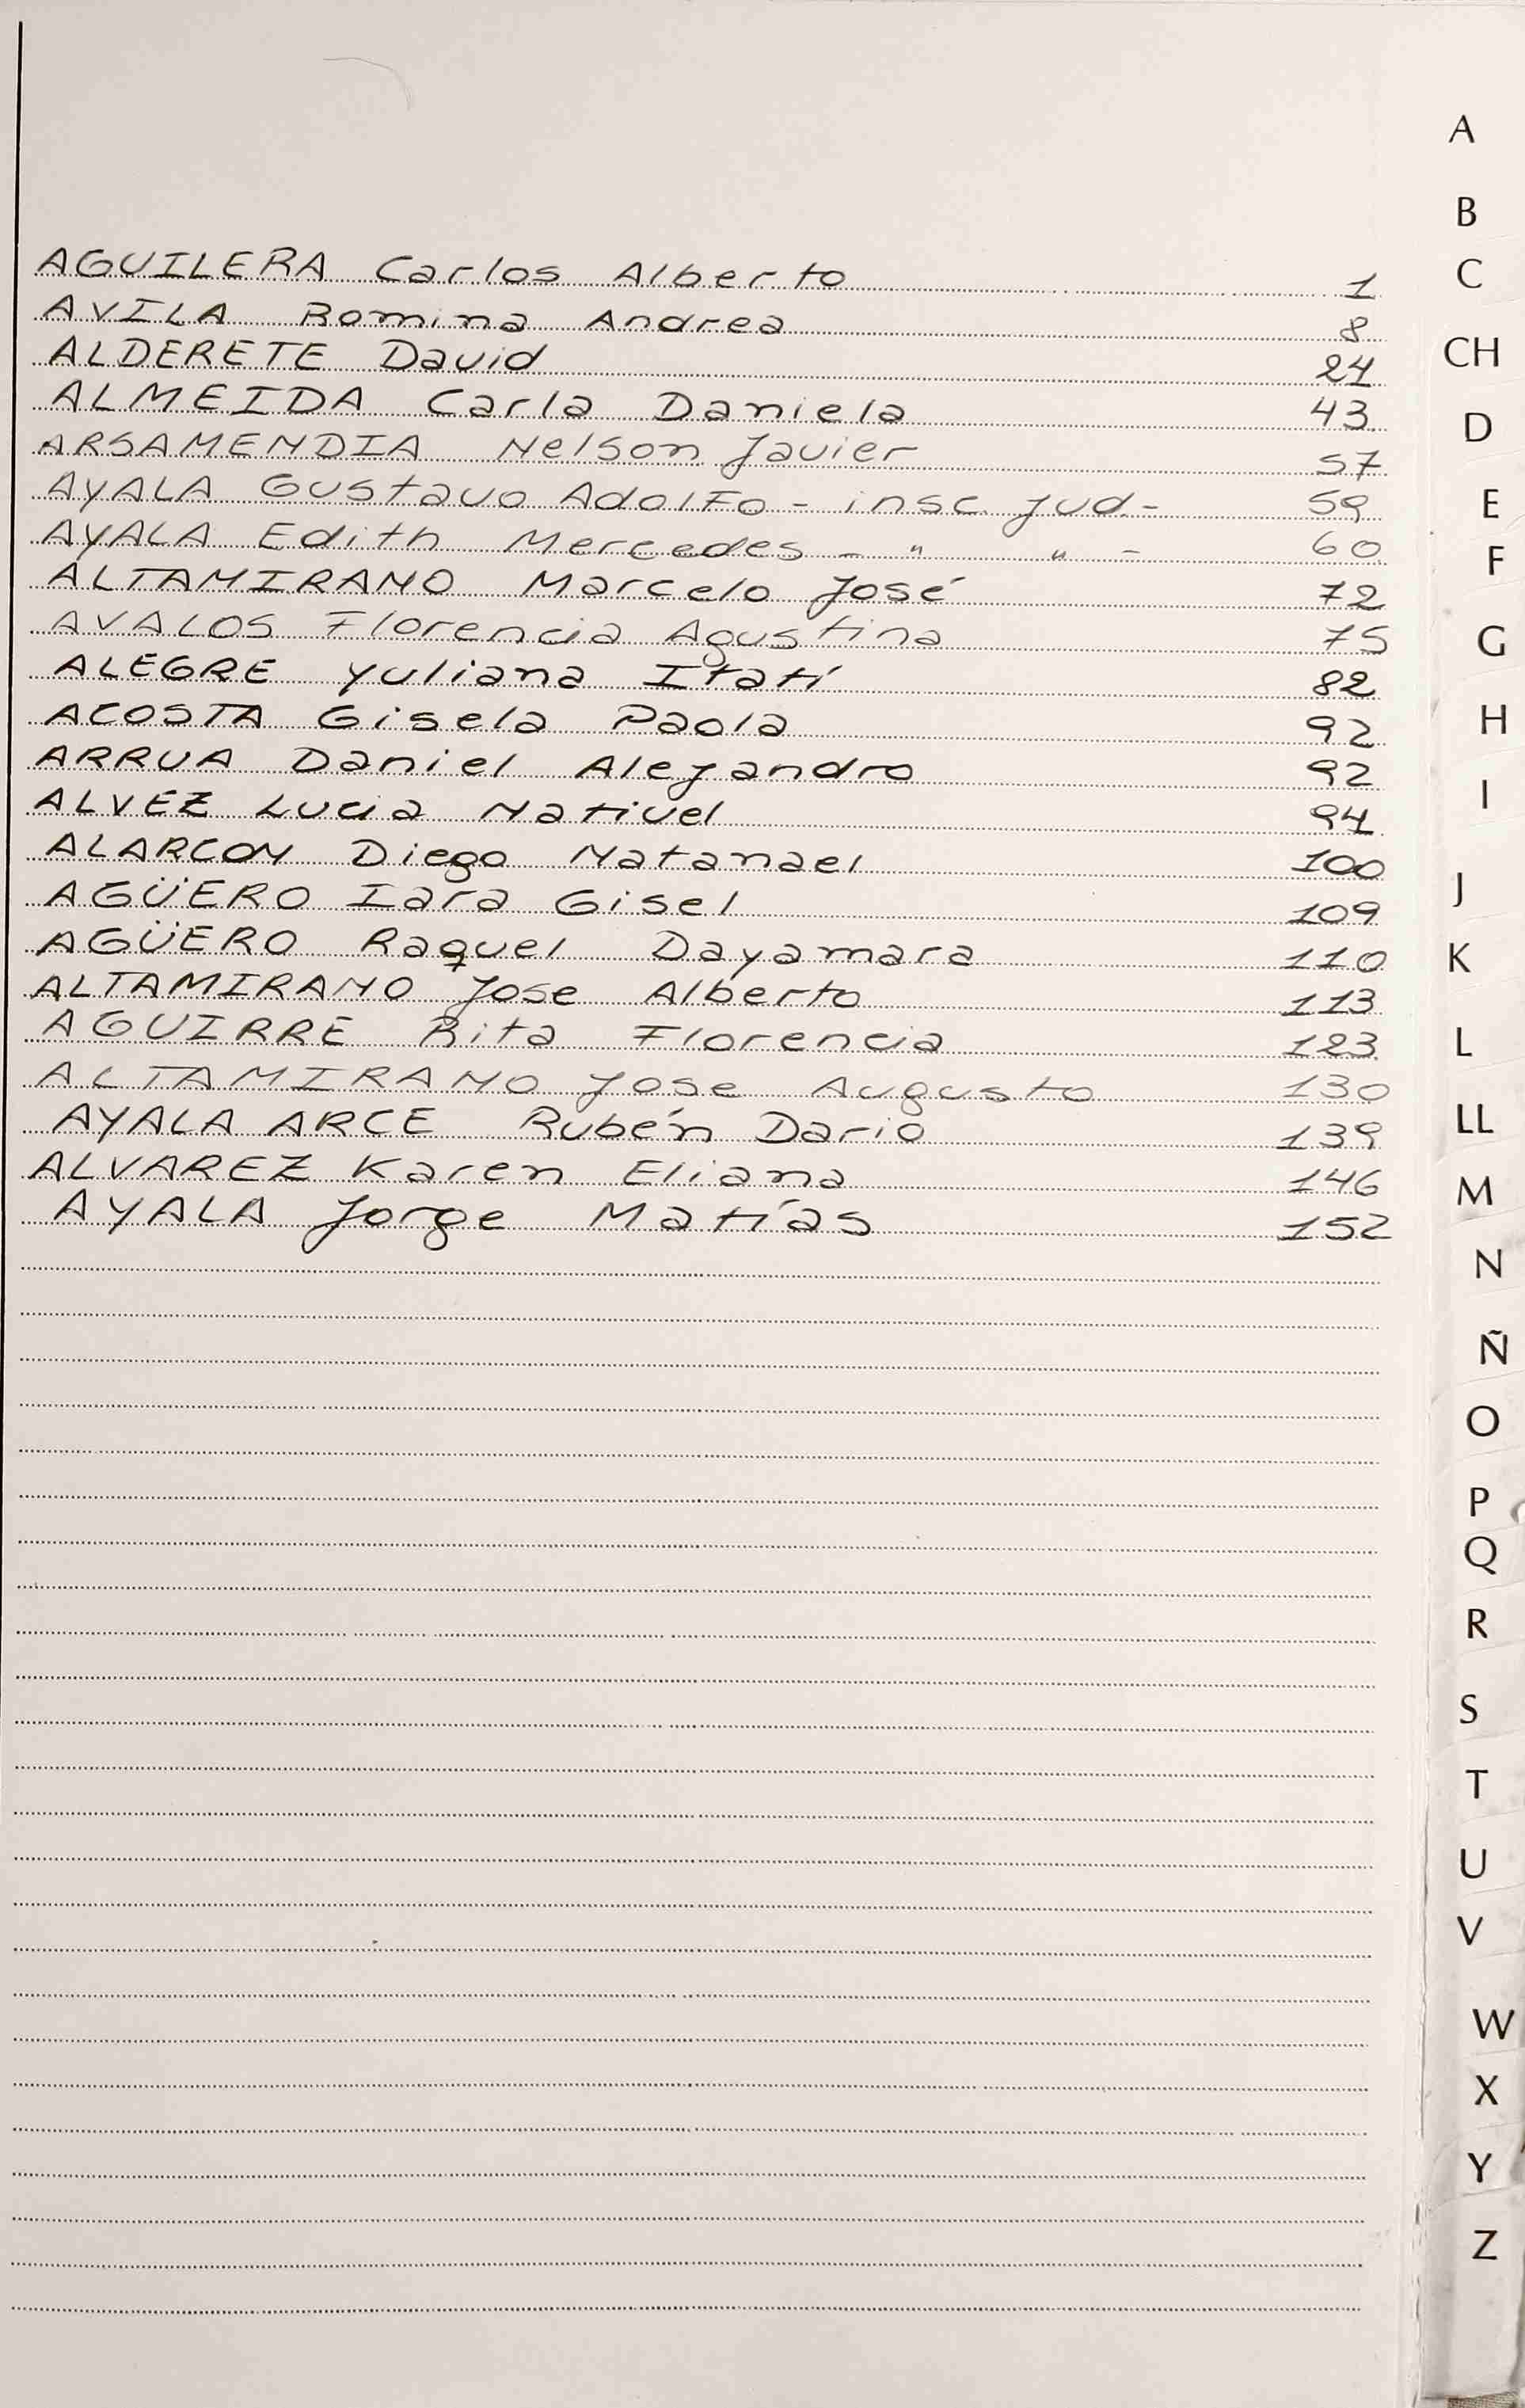 AGUILERA Carlos Alberto 1
AVILA Romina Andrea 8
ALDERETE David 24
ALMEIDA Carla Daniela 43
ARSAMENDIA Nelson Javier 57
AYALA Gustavo Adolfo - insc. jud.- 59
AYALA Edith Mercedes - " " - 60
ALTAMIRANO Marcelo José 72
AVALOS Florencia Agustina 75
ALEGRE Yuliana Itatí 82
ACOSTA Gisela Paola 92
ARRUA Daniel Alejandro 92
ALVEZ Lucia Nativel 94
ALARCON Diego Natanael 100
AGÜERO Iara Gisel 109
AGÜERO Raquel Dayamara 110
ALTAMIRANO Jose Alberto 113
AGUIRRE Rita Florencia 123
ALTAMIRANO Jose Augusto 130
AYALA ARCE Rubén Dario 139
ALVAREZ Karen Eliana 146
AYALA Jorge Matías 152
A
B
C
CH
D
E
F
G
H
I
J
K
L
LL
M
N
Ñ
O
P
Q
R
S
T
U
V
W
X
Y
Z